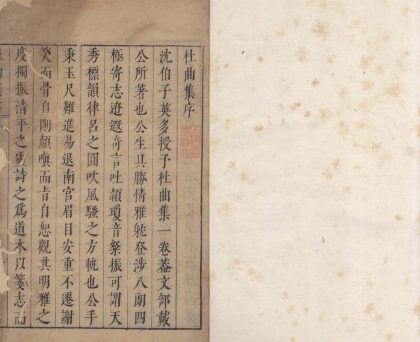 杜曲集序
沈伯子英多授予杜曲集一卷葢文部戴
公所著也公生具勝情雅躭登涉八閎四
極寄志遼邈奇言吐頴瓊音粲振可謂天
秀標韻律呂之圓吹風騷之方軌也公手
秉玉尺難進易退南官眉目安重不遷謝
笑而骨自剛顏嗔而青自恕觀其明雅之
度獨振清平之詩之為道本以箋志而